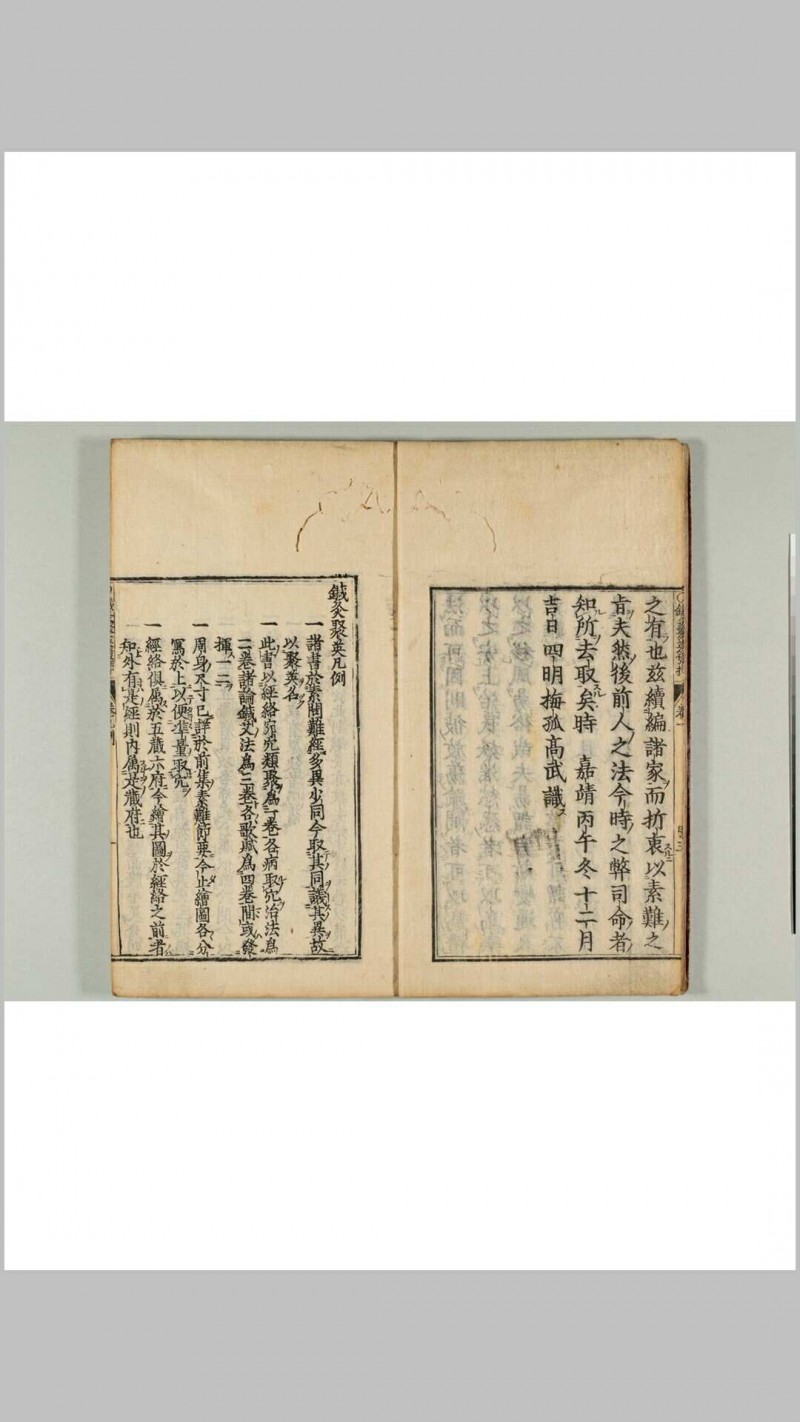 之有也玆續編諸家而折衷以素難之
旨夫然後前人之法今時之弊司命者
知所去取矣時　嘉靖丙午冬十二月
吉日四明梅孤高武識
鍼灸聚英凡例
一諸書於素問難經多異少同今取其同議其異故
以聚英名
一此書以經絡穴類聚爲一卷各病取穴治法爲
二卷諸論鍼艾法爲三卷各歌賦爲四卷間或發
揮一二
一周身尺寸已詳於前集素難節要今止繪圖各分
寫於上以便準量取穴
一經絡俱屬於五藏六府今繪其圖於經絡之前者
知外有是經則內屬是藏府也